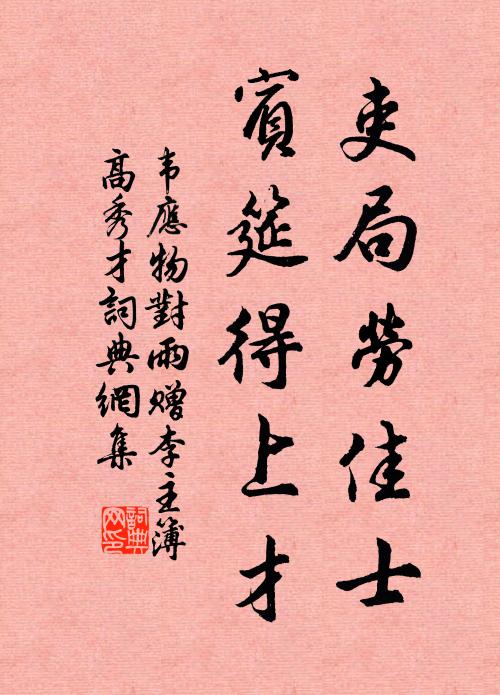 吏局勞佳士
賓筵得上才
韦應物對雨赠李主簿
高秀才詞典網集
詞典
网印